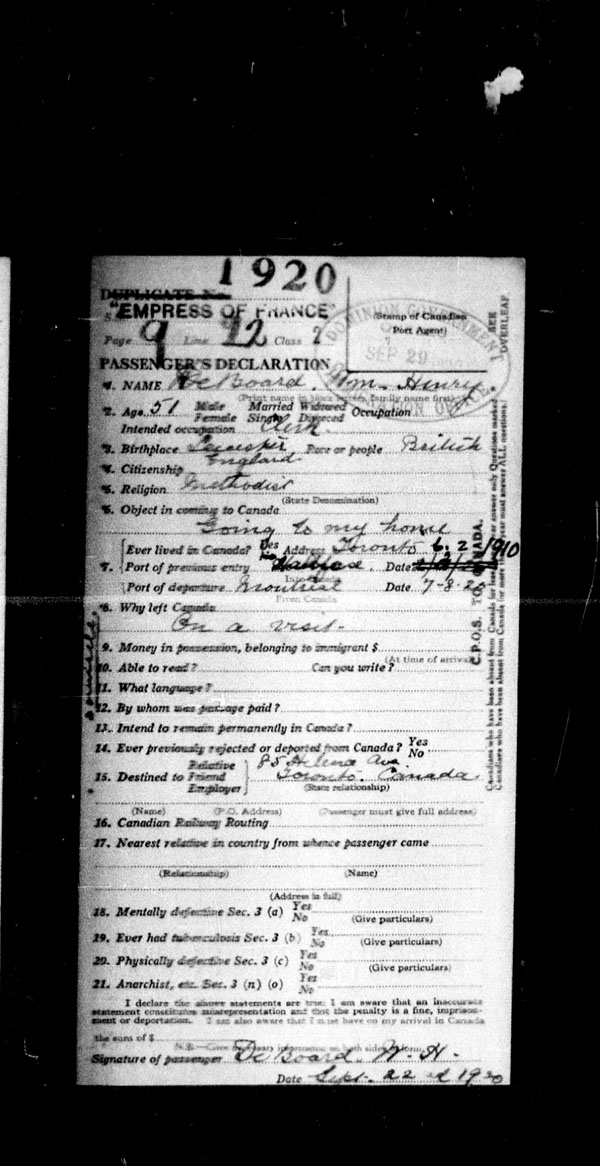 1920
DUPLICATE No.
S.S. "EMPRESS OF FRANCE"
Page 9 Line 22 Class 2
(Stamp of Canadian
Port Agent)
DOMINION GOVERNMENT
SEP 29
1Yr SEE
OVERLEAF.
PASSENGER'S DECLARATION
*1. NAME DeBoard. Wm. Henry.
(Print name in block letters, family name first)
*2. Age 51 Male Married Widowed Occupation
Female Single Divorced
Intended occupation Clerk
*3. Birthplace Leicester Race or people British
England
*4. Citizenship
*5. Religion Methodist
(State Denomination)
*6. Object in coming to Canada
Going to my home
Ever lived in Canada? Yes No Address Toronto 6. 2 1910
*7. Port of previous entry Halifax Date
Into Canada
Port of departure Montreal Date 7-8-20
From Canada
*8. Why left Canada
On a visit.
9. Money in possession, belonging to immigrant $
(At time of arrival)
10. Able to read? Can you write?
11. What language?
12. By whom was passage paid?
13. Intend to remain permanently in Canada?
14. Ever previously rejected or deported from Canada? Yes
No
Relative 85 Helena Ave.
15. Destined to Friend Toronto. Canada
Employer (State relationship)
(Name) (P.O. Address) (Passenger must give full address)
16. Canadian Railway Routing
17. Nearest relative in country from whence passenger came
(Relationship) (Name)
(Address in full)
18. Mentally defective Sec. 3 (a) Yes
No (Give particulars)
19. Ever had tuberculosis Sec. 3 (b) Yes
No (Give particulars)
20. Physically defective Sec. 3 (c) Yes
No (Give particulars)
21. Anarchist, etc. Sec. 3 (n) (o) Yes
No
I declare the above statements are true. I am aware that an inaccurate
statement constitutes misrepresentation and that the penalty is a fine, imprison-
ment or deportation. I am also aware that I must have on my arrival in Canada
the sum of $
N.B.—Give necessary information on both sides of form.
Signature of passenger DeBoard. W. H.
Date Sept. 22nd 1920
C.P.O.S. TO CANADA.